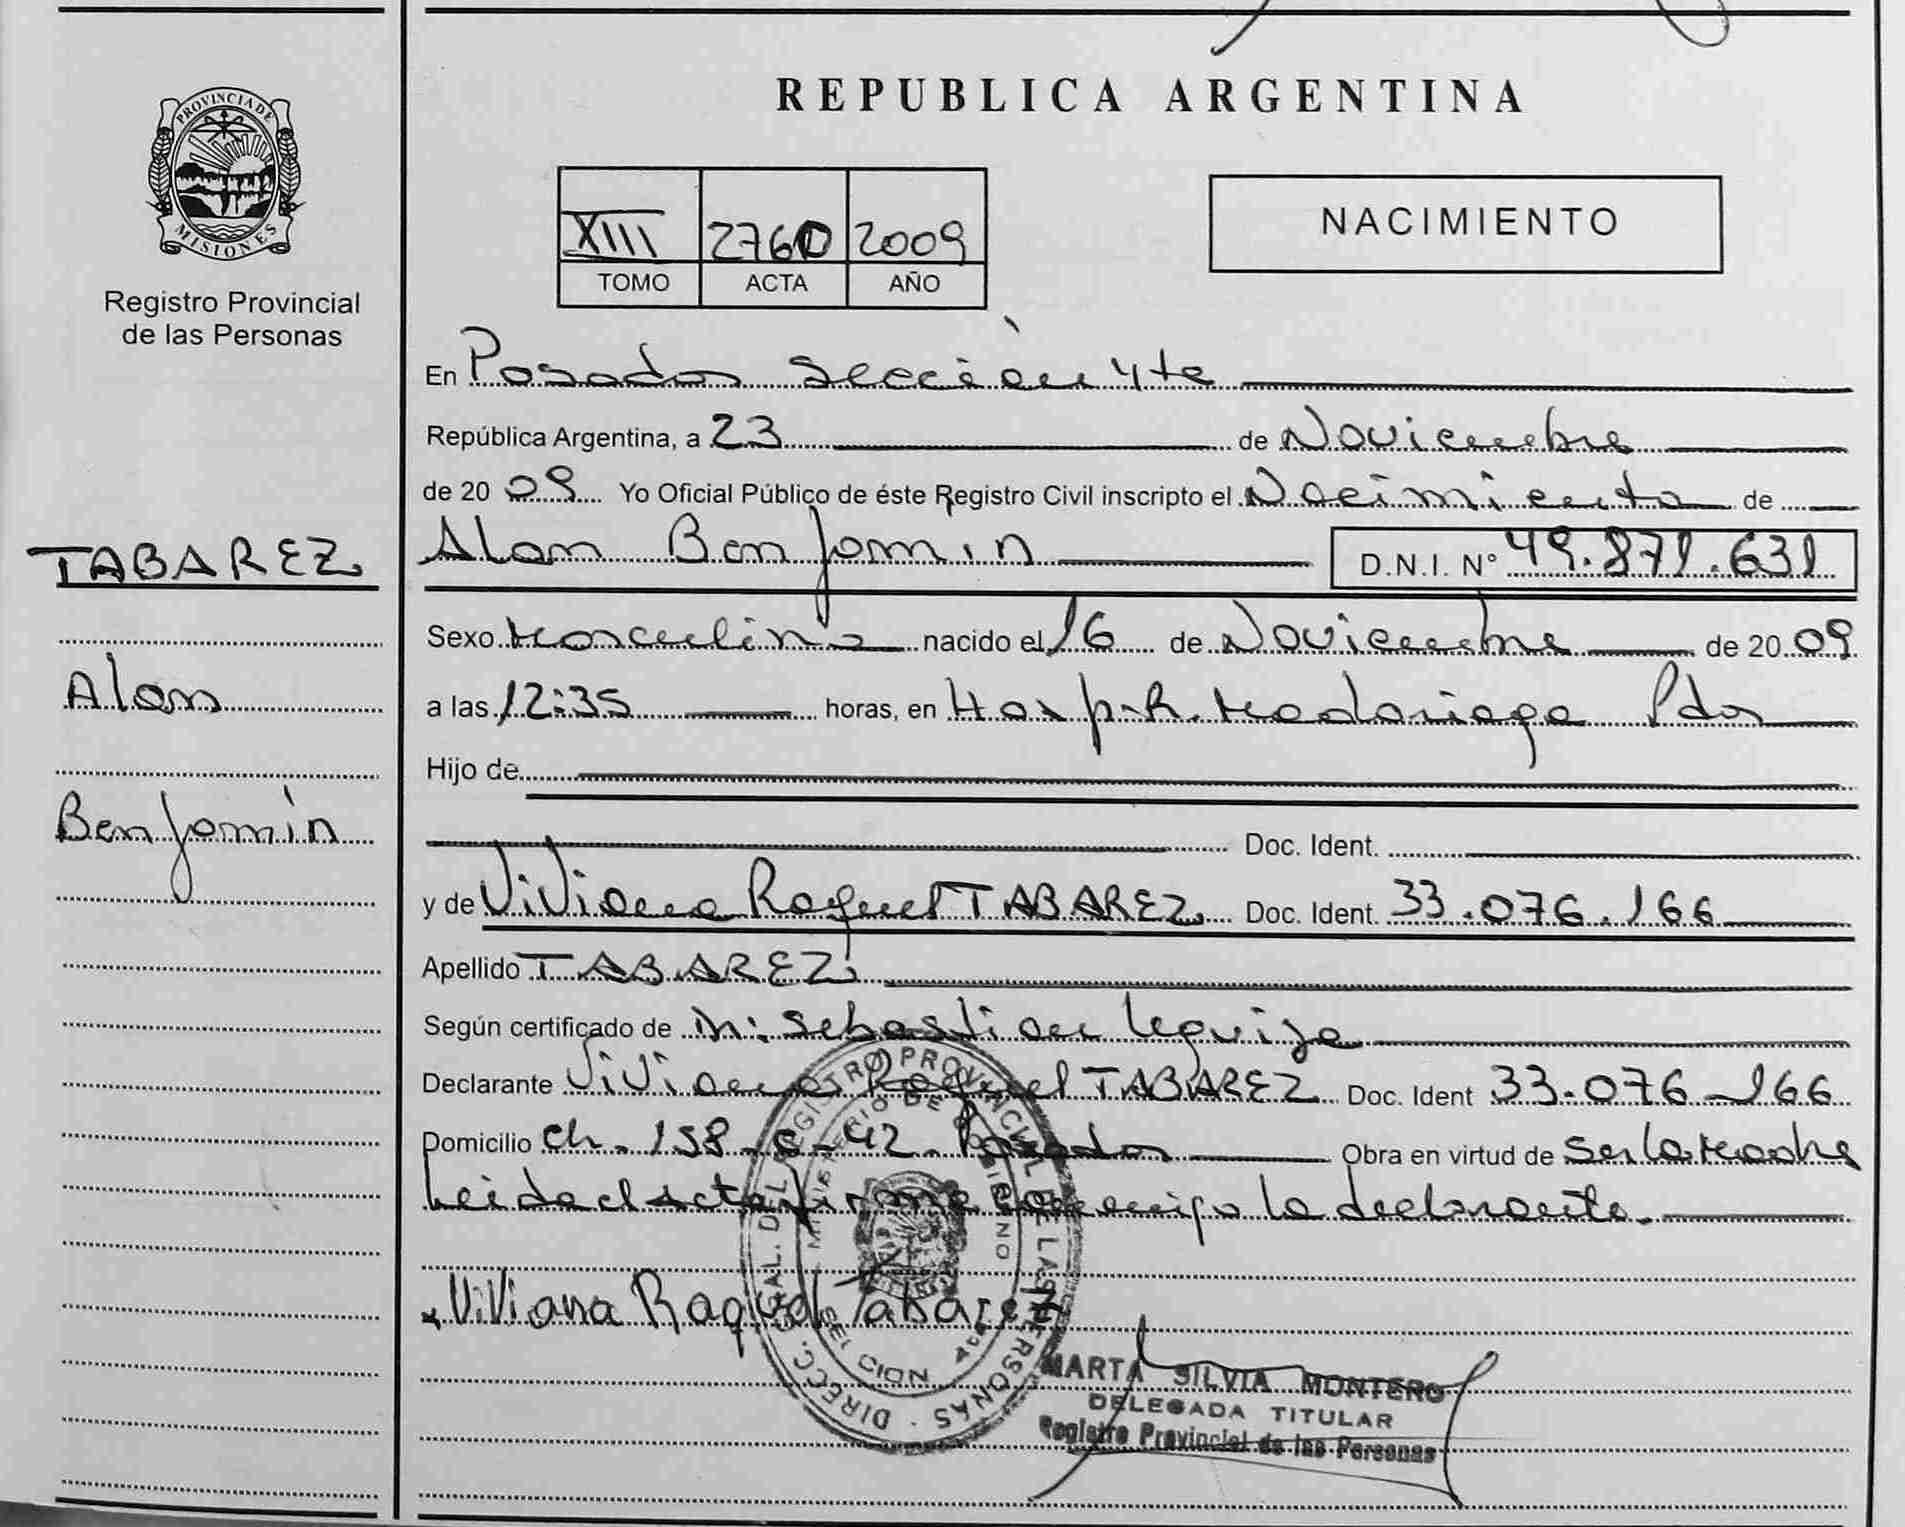 PROVINCIA DE
MISIONES
Registro Provincial
de las Personas
TABAREZ
Alan
Benjamín
REPUBLICA ARGENTINA
XIII 2760 2009
TOMO ACTA AÑO
NACIMIENTO
En Posadas Sección 4ta
República Argentina, a 23 de Noviembre
de 20 09 Yo Oficial Público de éste Registro Civil inscripto el Nacimiento de
Alan Benjamin D.N.I. N° 49.871.631
Sexo Masculino nacido el 16 de Noviembre de 20 09
a las 12:35 horas, en Hosp. R. Madariaga Pdas
Hijo de
Doc. Ident.
y de Viviana Raquel TABAREZ Doc. Ident. 33.076.166
Apellido TABAREZ
Según certificado de Sebastian Leguiza
Declarante Viviana Raquel TABAREZ Doc. Ident 33.076.166
Domicilio Ch. 158 c. 42. Posadas Obra en virtud de Ser la Madre
Leida el acta firma conmigo la declarante.
Viviana Raquel Tabarez
DIRECC. GRAL. DEL REGISTRO PROVINCIAL DE LAS PERSONAS
MINISTERIO DE GOBIERNO
MARTA SILVIA MONTERO
DELEGADA TITULAR
Registro Provincial de las Personas